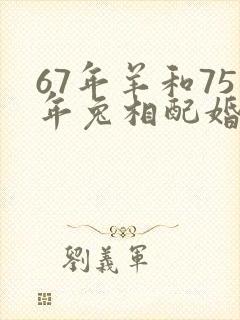 67年羊和75
年兔相配婚
劉義軍